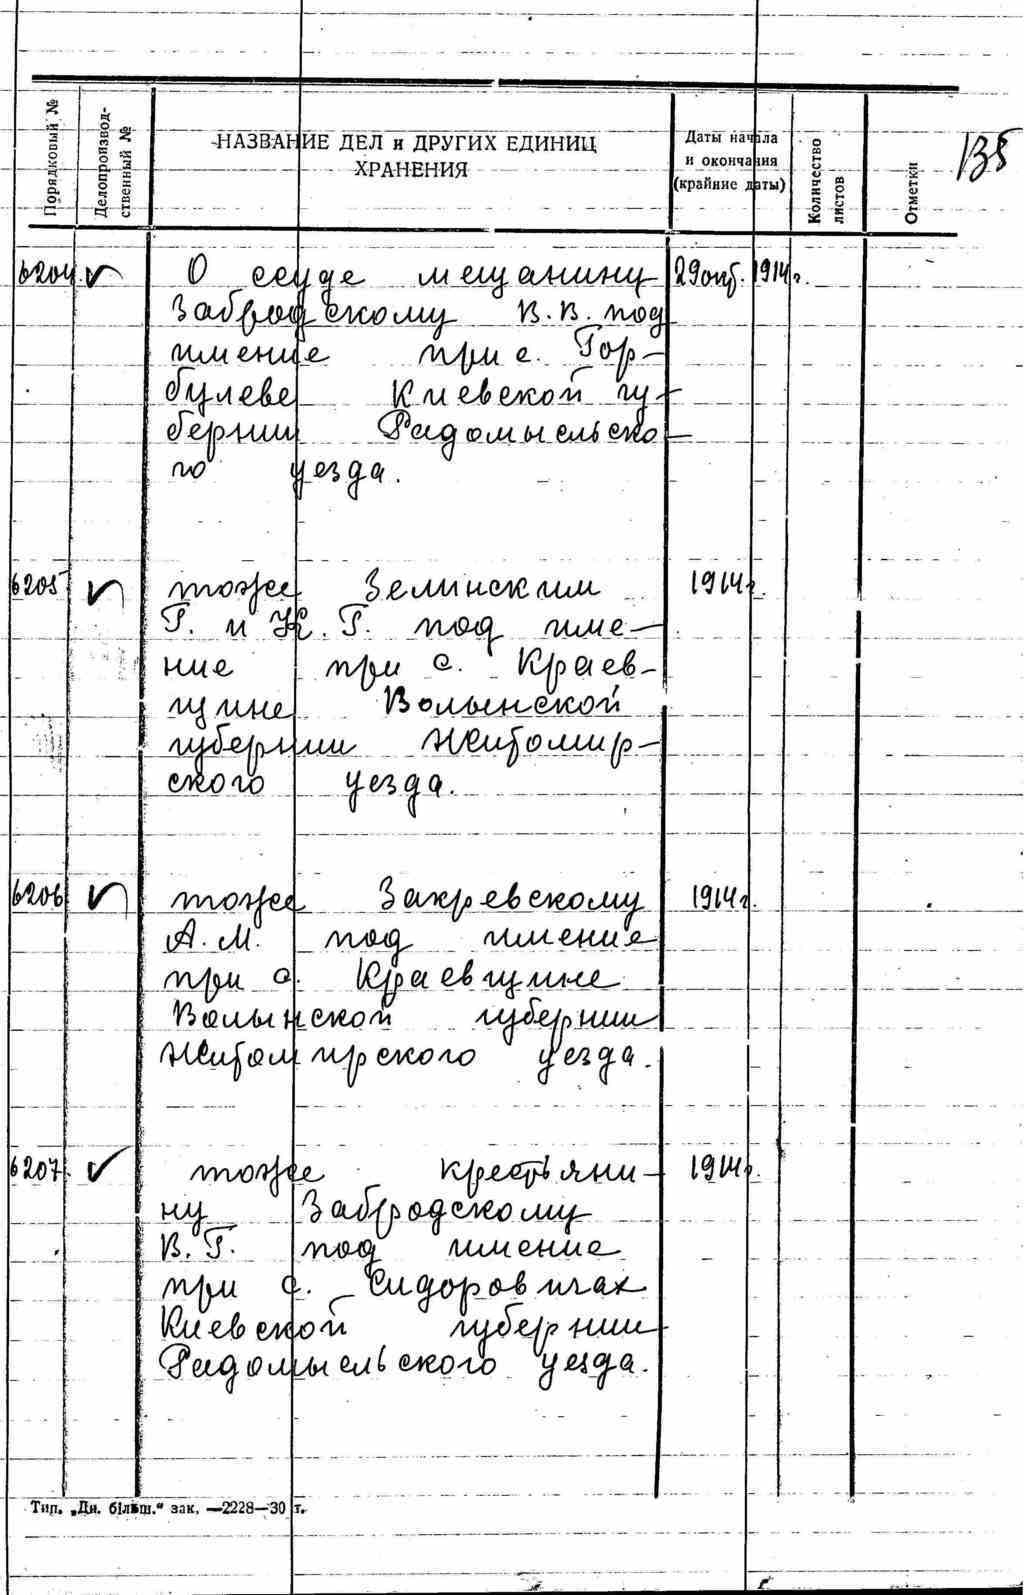 135
Порядковый №
Делопроизвод-
ственный №
НАЗВАНИЕ ДЕЛ и ДРУГИХ ЕДИНИЦ
ХРАНЕНИЯ
Даты начала
и окончания
(крайние даты)
Количество
листов
Отметки
6204. О ссуде мещанину 29 окт. 1914 г.
Забродскому В.В. под
имение при с. Гор-
булеве Киевской гу-
бернии Радомысльско-
го уезда.
6205 тоже Зелинским 1914 г.
Г. и К. Г. под име-
ние при с. Краев-
щине Волынской
губернии Житомир-
ского уезда.
6206 тоже Закревскому 1914 г.
А. М. под имение
при с. Краевщине
Волынской губернии
Житомирского уезда.
6207. тоже крестьяни- 1914 г.
ну Забродскому
В. Г. под имение
при с. Сидоровичах
Киевской губернии
Радомысльского уезда.
Тип. „Дн. більш.“ зак. —2228—30 т.